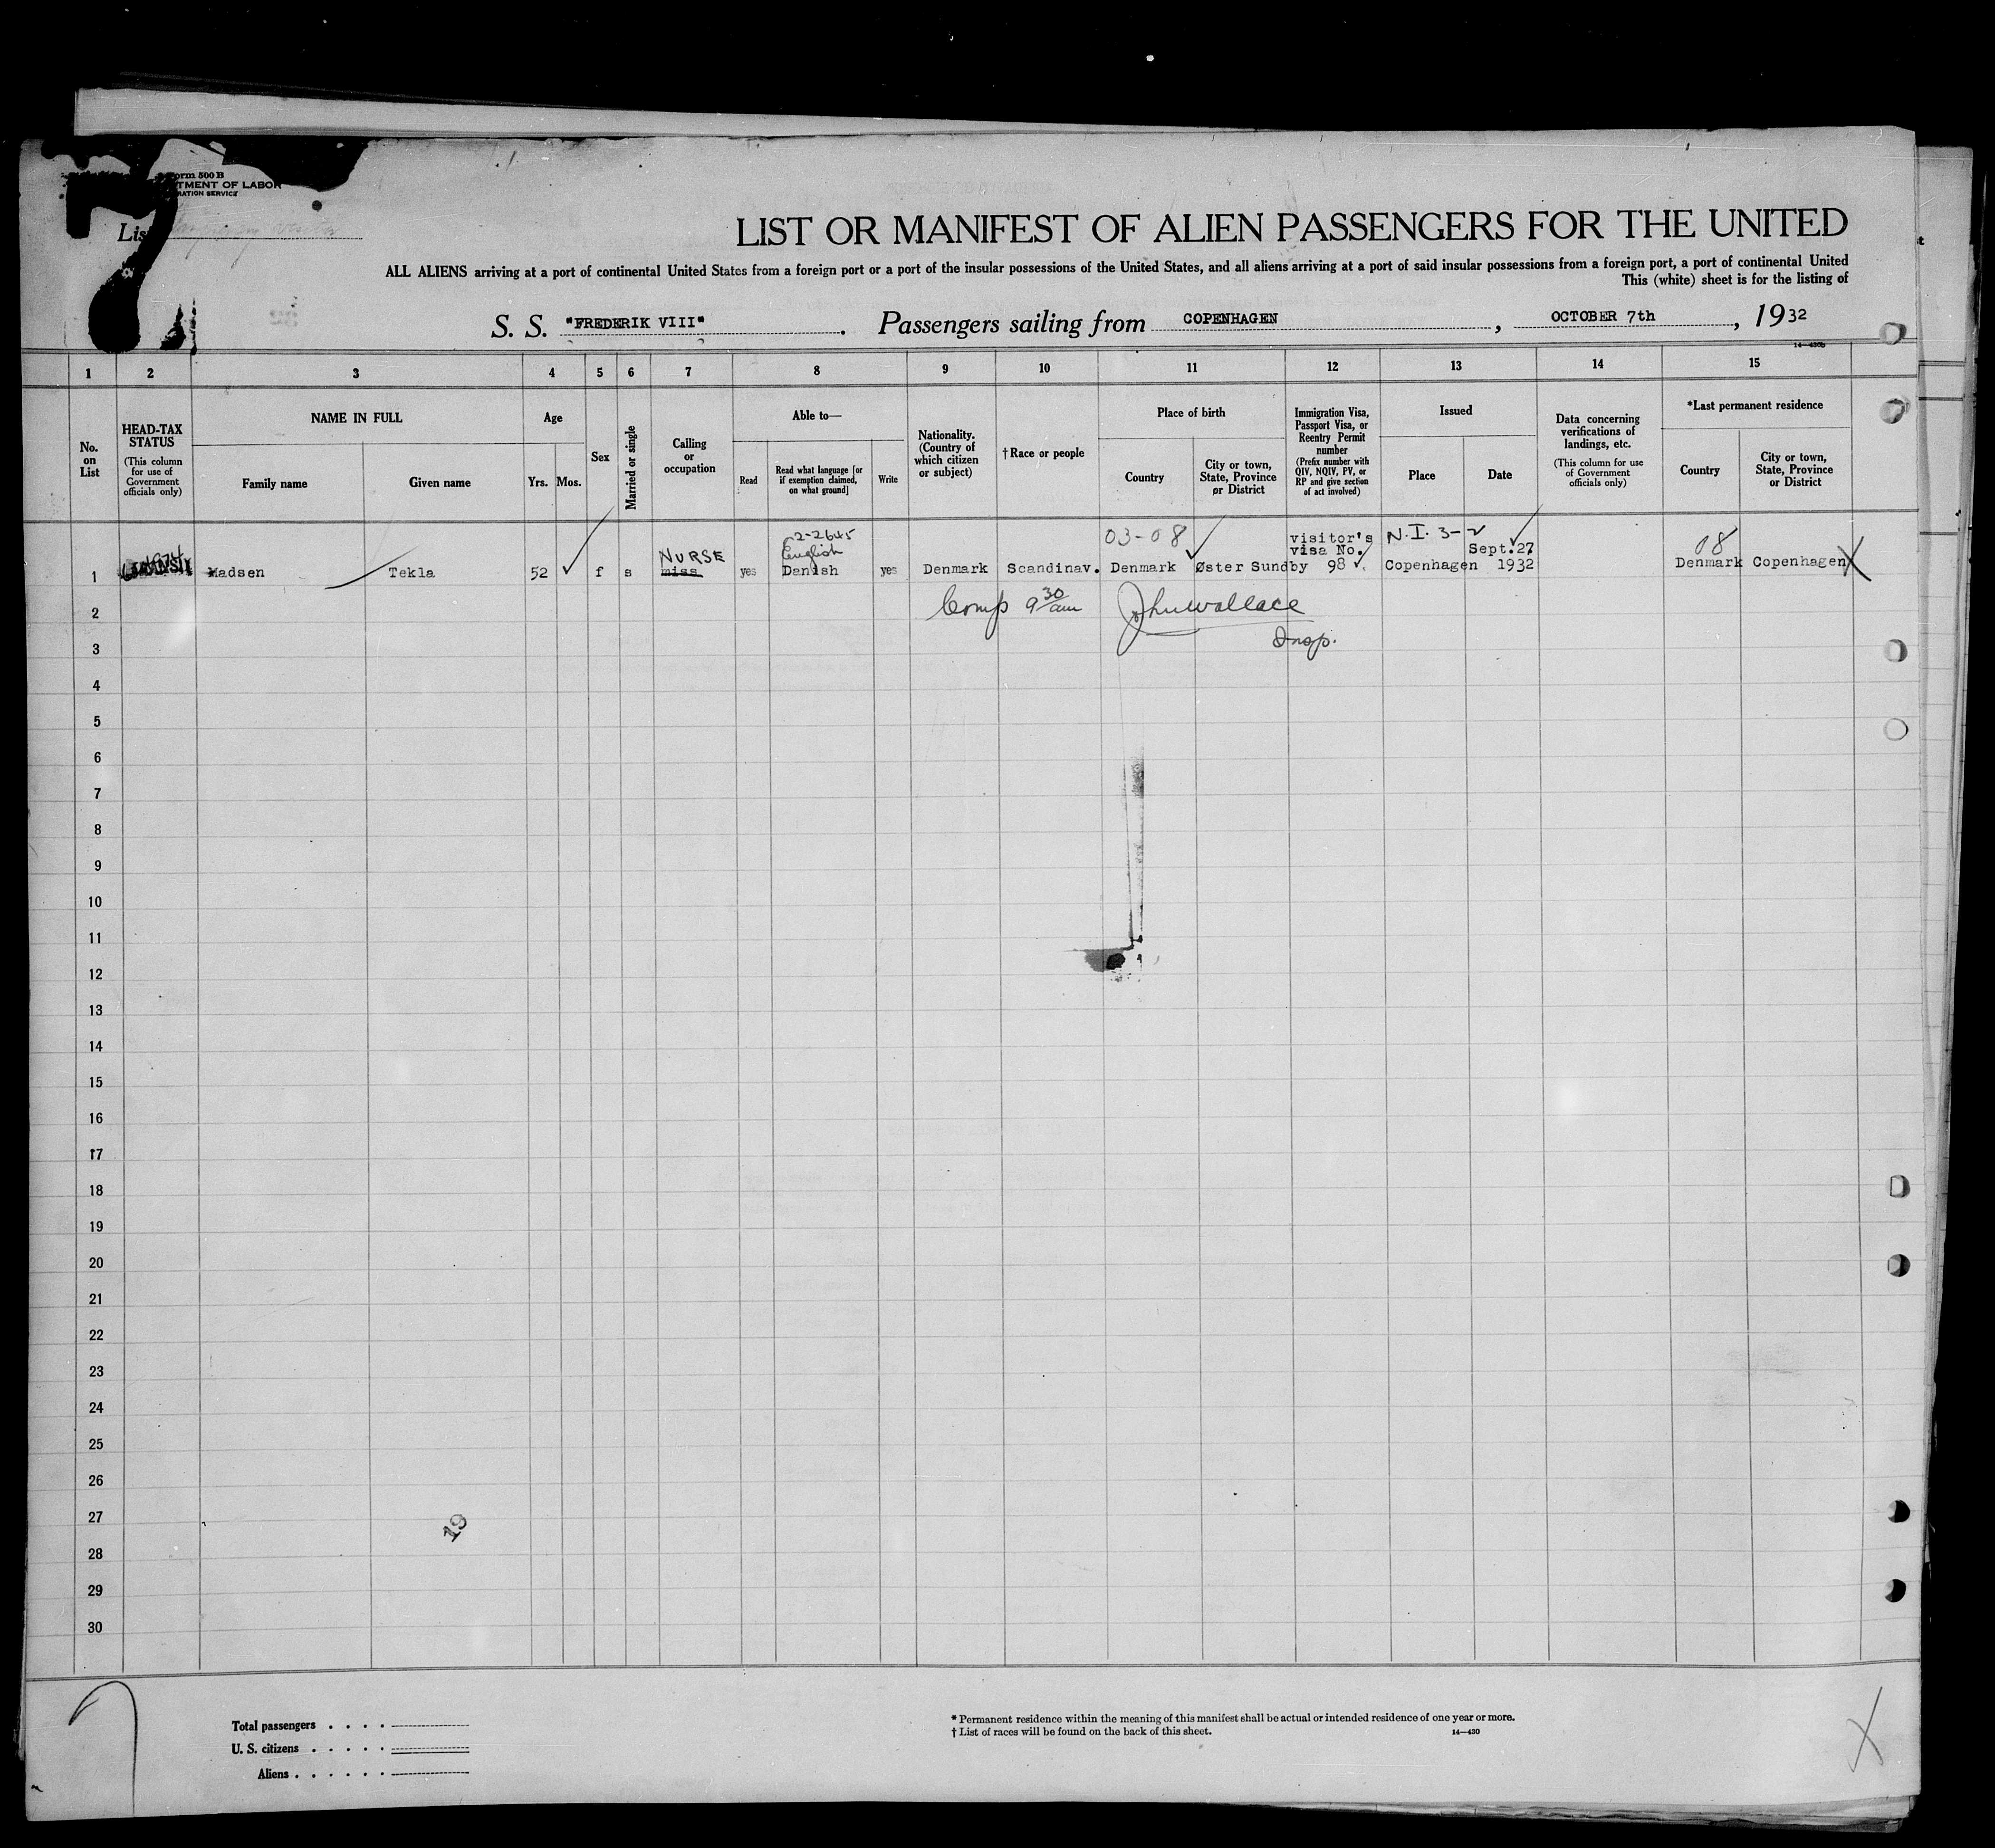 orm 500 B
TMENT OF LABOR
RATION SERVICE
7
List
LIST OR MANIFEST OF ALIEN PASSENGERS FOR THE UNITED
ALL ALIENS arriving at a port of continental United States from a foreign port or a port of the insular possessions of the United States, and all aliens arriving at a port of said insular possessions from a foreign port, a port of continental United
This (white) sheet is for the listing of
S. S. "FREDERIK VIII". Passengers sailing from COPENHAGEN, OCTOBER 7th, 1932
14—430b
1 2 3 4 5 6 7 8 9 10 11 12 13 14 15
No. on List
HEAD-TAX STATUS (This column for use of Government officials only)
NAME IN FULL
Family name
Given name
Age
Yrs.
Mos.
Sex
Married or single
Calling or occupation
Able to—
Read
Read what language [or if exemption claimed, on what ground]
Write
Nationality. (Country of which citizen or subject)
†Race or people
Place of birth
Country
City or town, State, Province or District
Immigration Visa, Passport Visa, or Reentry Permit number (Prefix number with QIV, NQIV, PV, or RP and give section of act involved)
Issued
Place
Date
Data concerning verifications of landings, etc. (This column for use of Government officials only)
*Last permanent residence
Country
City or town, State, Province or District
2-2645 03-08 visitor's N.I. 3-2
NURSE English visa No. Sept.27 08
1 Madsen Tekla 52 f s miss yes Danish yes Denmark Scandinav. Denmark Øster Sundby 98 Copenhagen 1932 Denmark Copenhagen X
2 Comp 9 30 am John Wallace
3 Insp.
4
5
6
7
8
9
10
11
12
13
14
15
16
17
18
19
20
21
22
23
24
25
26
27 19
28
29
30
Total passengers . . . .
U. S. citizens . . . . .
Aliens . . . . . .
* Permanent residence within the meaning of this manifest shall be actual or intended residence of one year or more.
† List of races will be found on the back of this sheet. 14—430
X